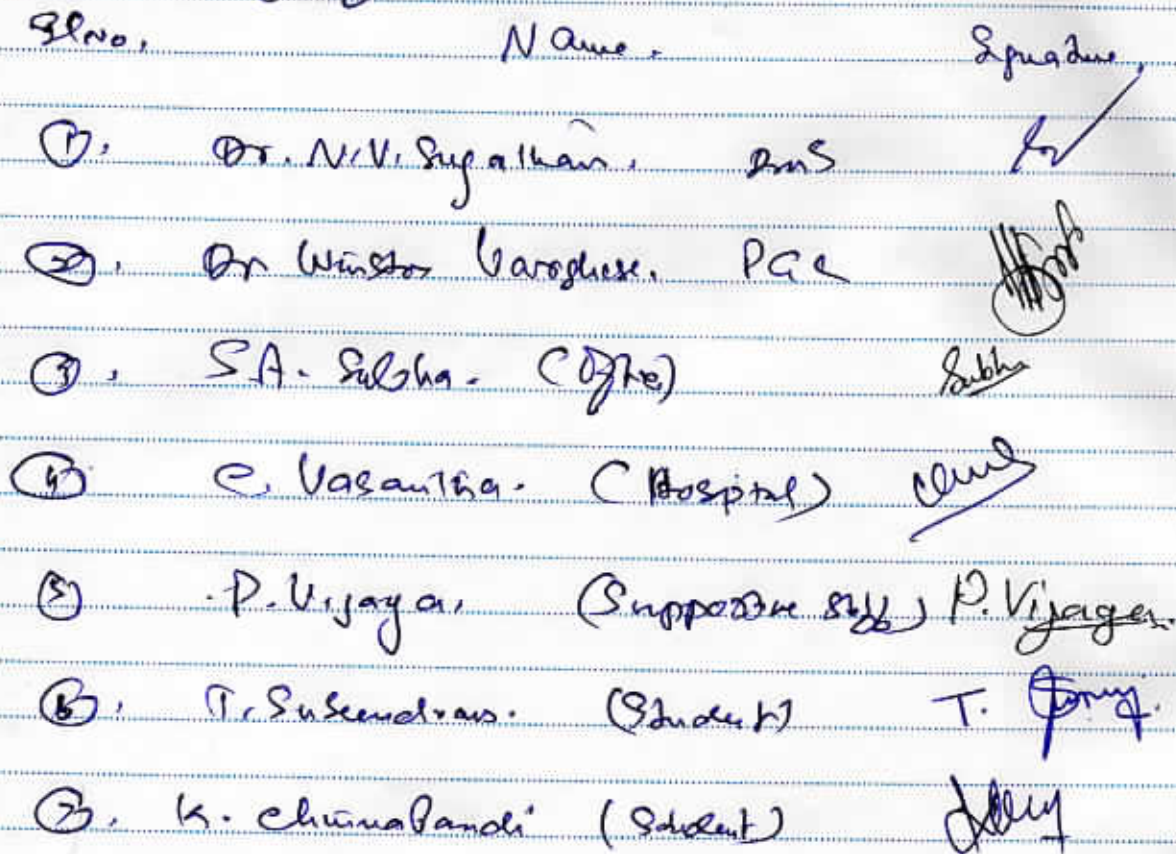 Sl No. Name. Signature.
①. Dr. N.V. Sugathan. DMS
②. Dr Winston Varghese. PGR
③. S.A. Subha. (Office) Subha
④ C. Vasantha. (Hospital)
⑤ P. Vijaya. (Supportive staff) P. Vijaya.
⑥. T. Susendran. (Student) T.
⑦. K. Chinnapandi (Student)